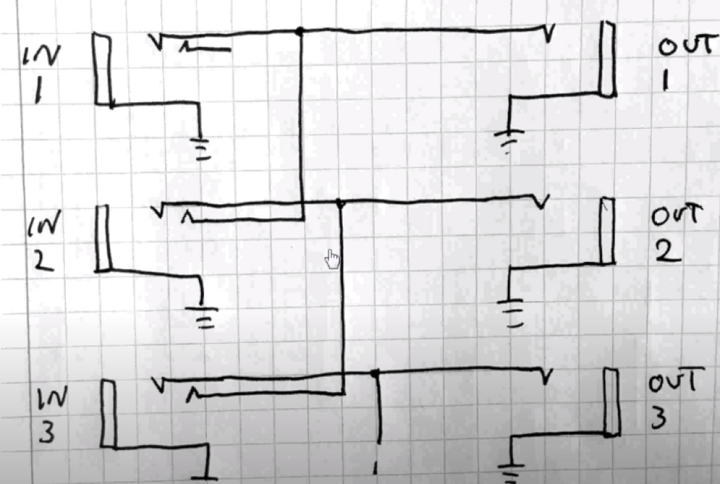 IN
1
OUT
1
IN
2
OUT
2
IN
3
OUT
3